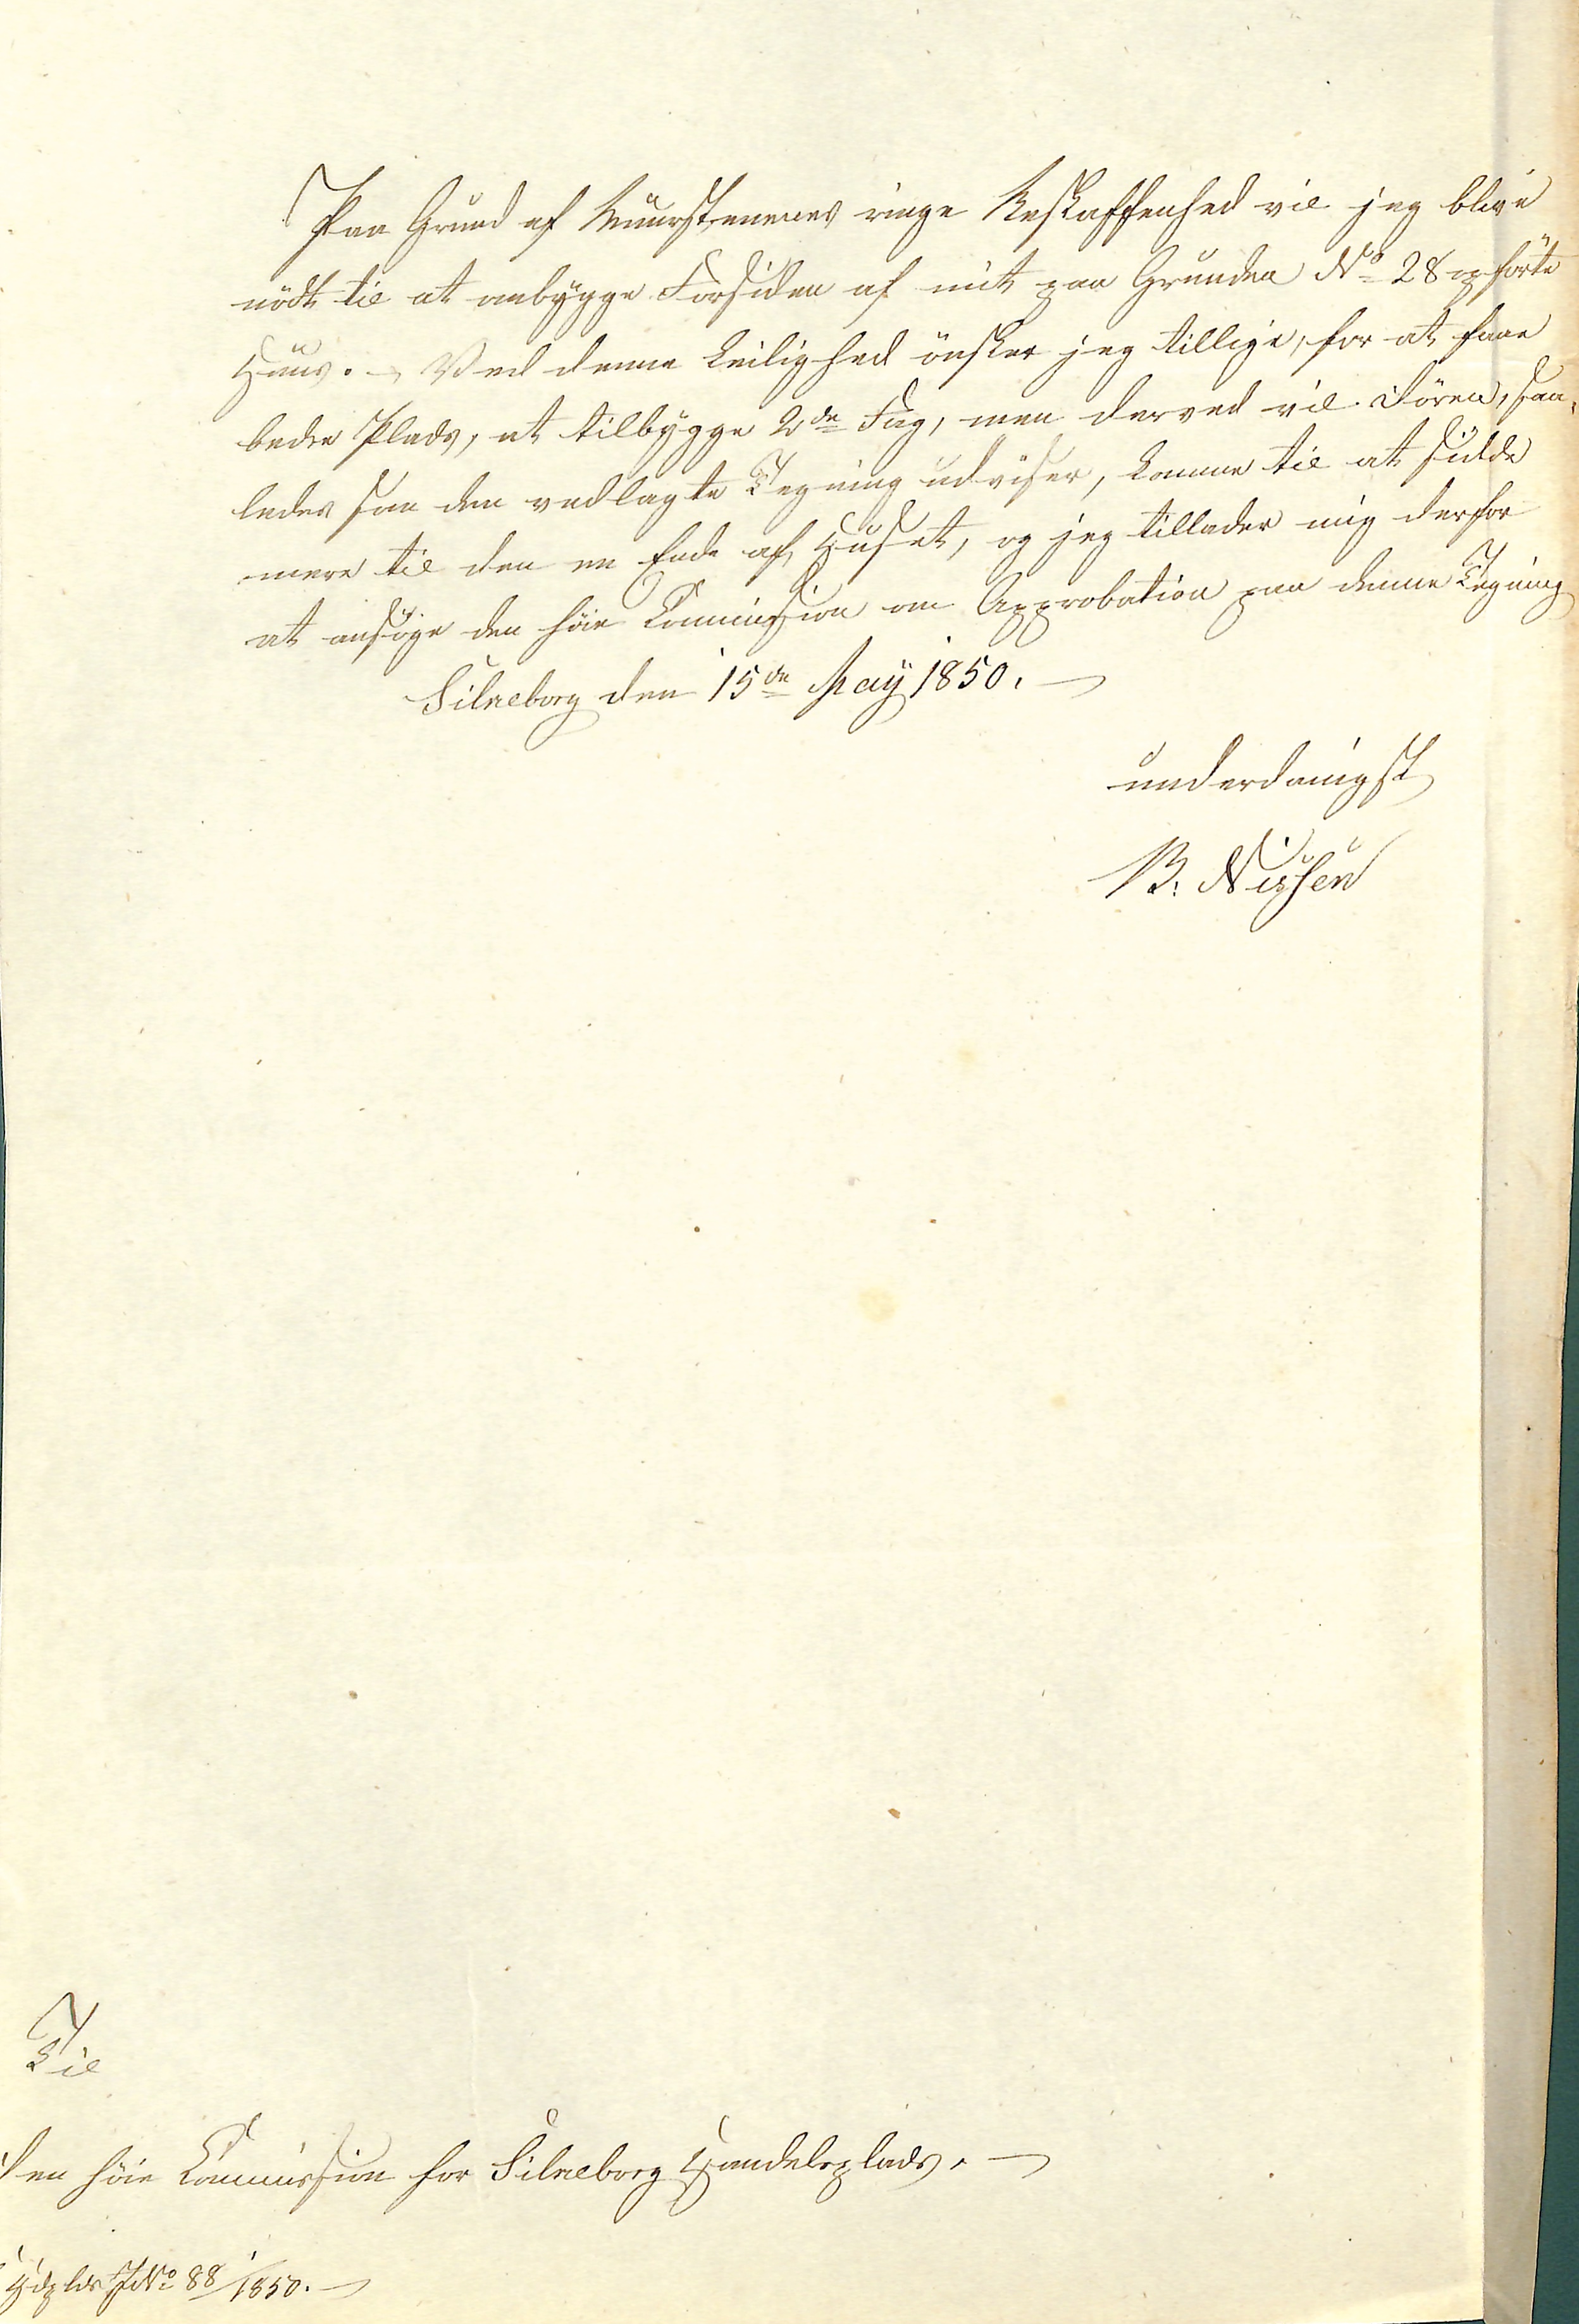 Paa Grund af Muurstenenes ringe Beskaffenhed vil jeg blive
nödt til at ombygge Forsiden af mit paa Grunden No 28 opförte
Huus. – Ved denne Leilighed önsker jeg tillige, for at faae
bedre Plads, at tilbygge 2de Fag, men derved vil Dören, saa-
ledes som den vedlagte Tegning udviser, komme til at sidde
mere til den ene Ende af Huset, og jeg tillader mig derfor
at ansöge den höie Commission om Approbation paa denne Tegning
Silkeborg den 15de May 1850. –
underdanigst
B. Nissen
Til
den höie Commission for Silkeborg Handelsplads. –
Hdplds JNo 88/1850. –